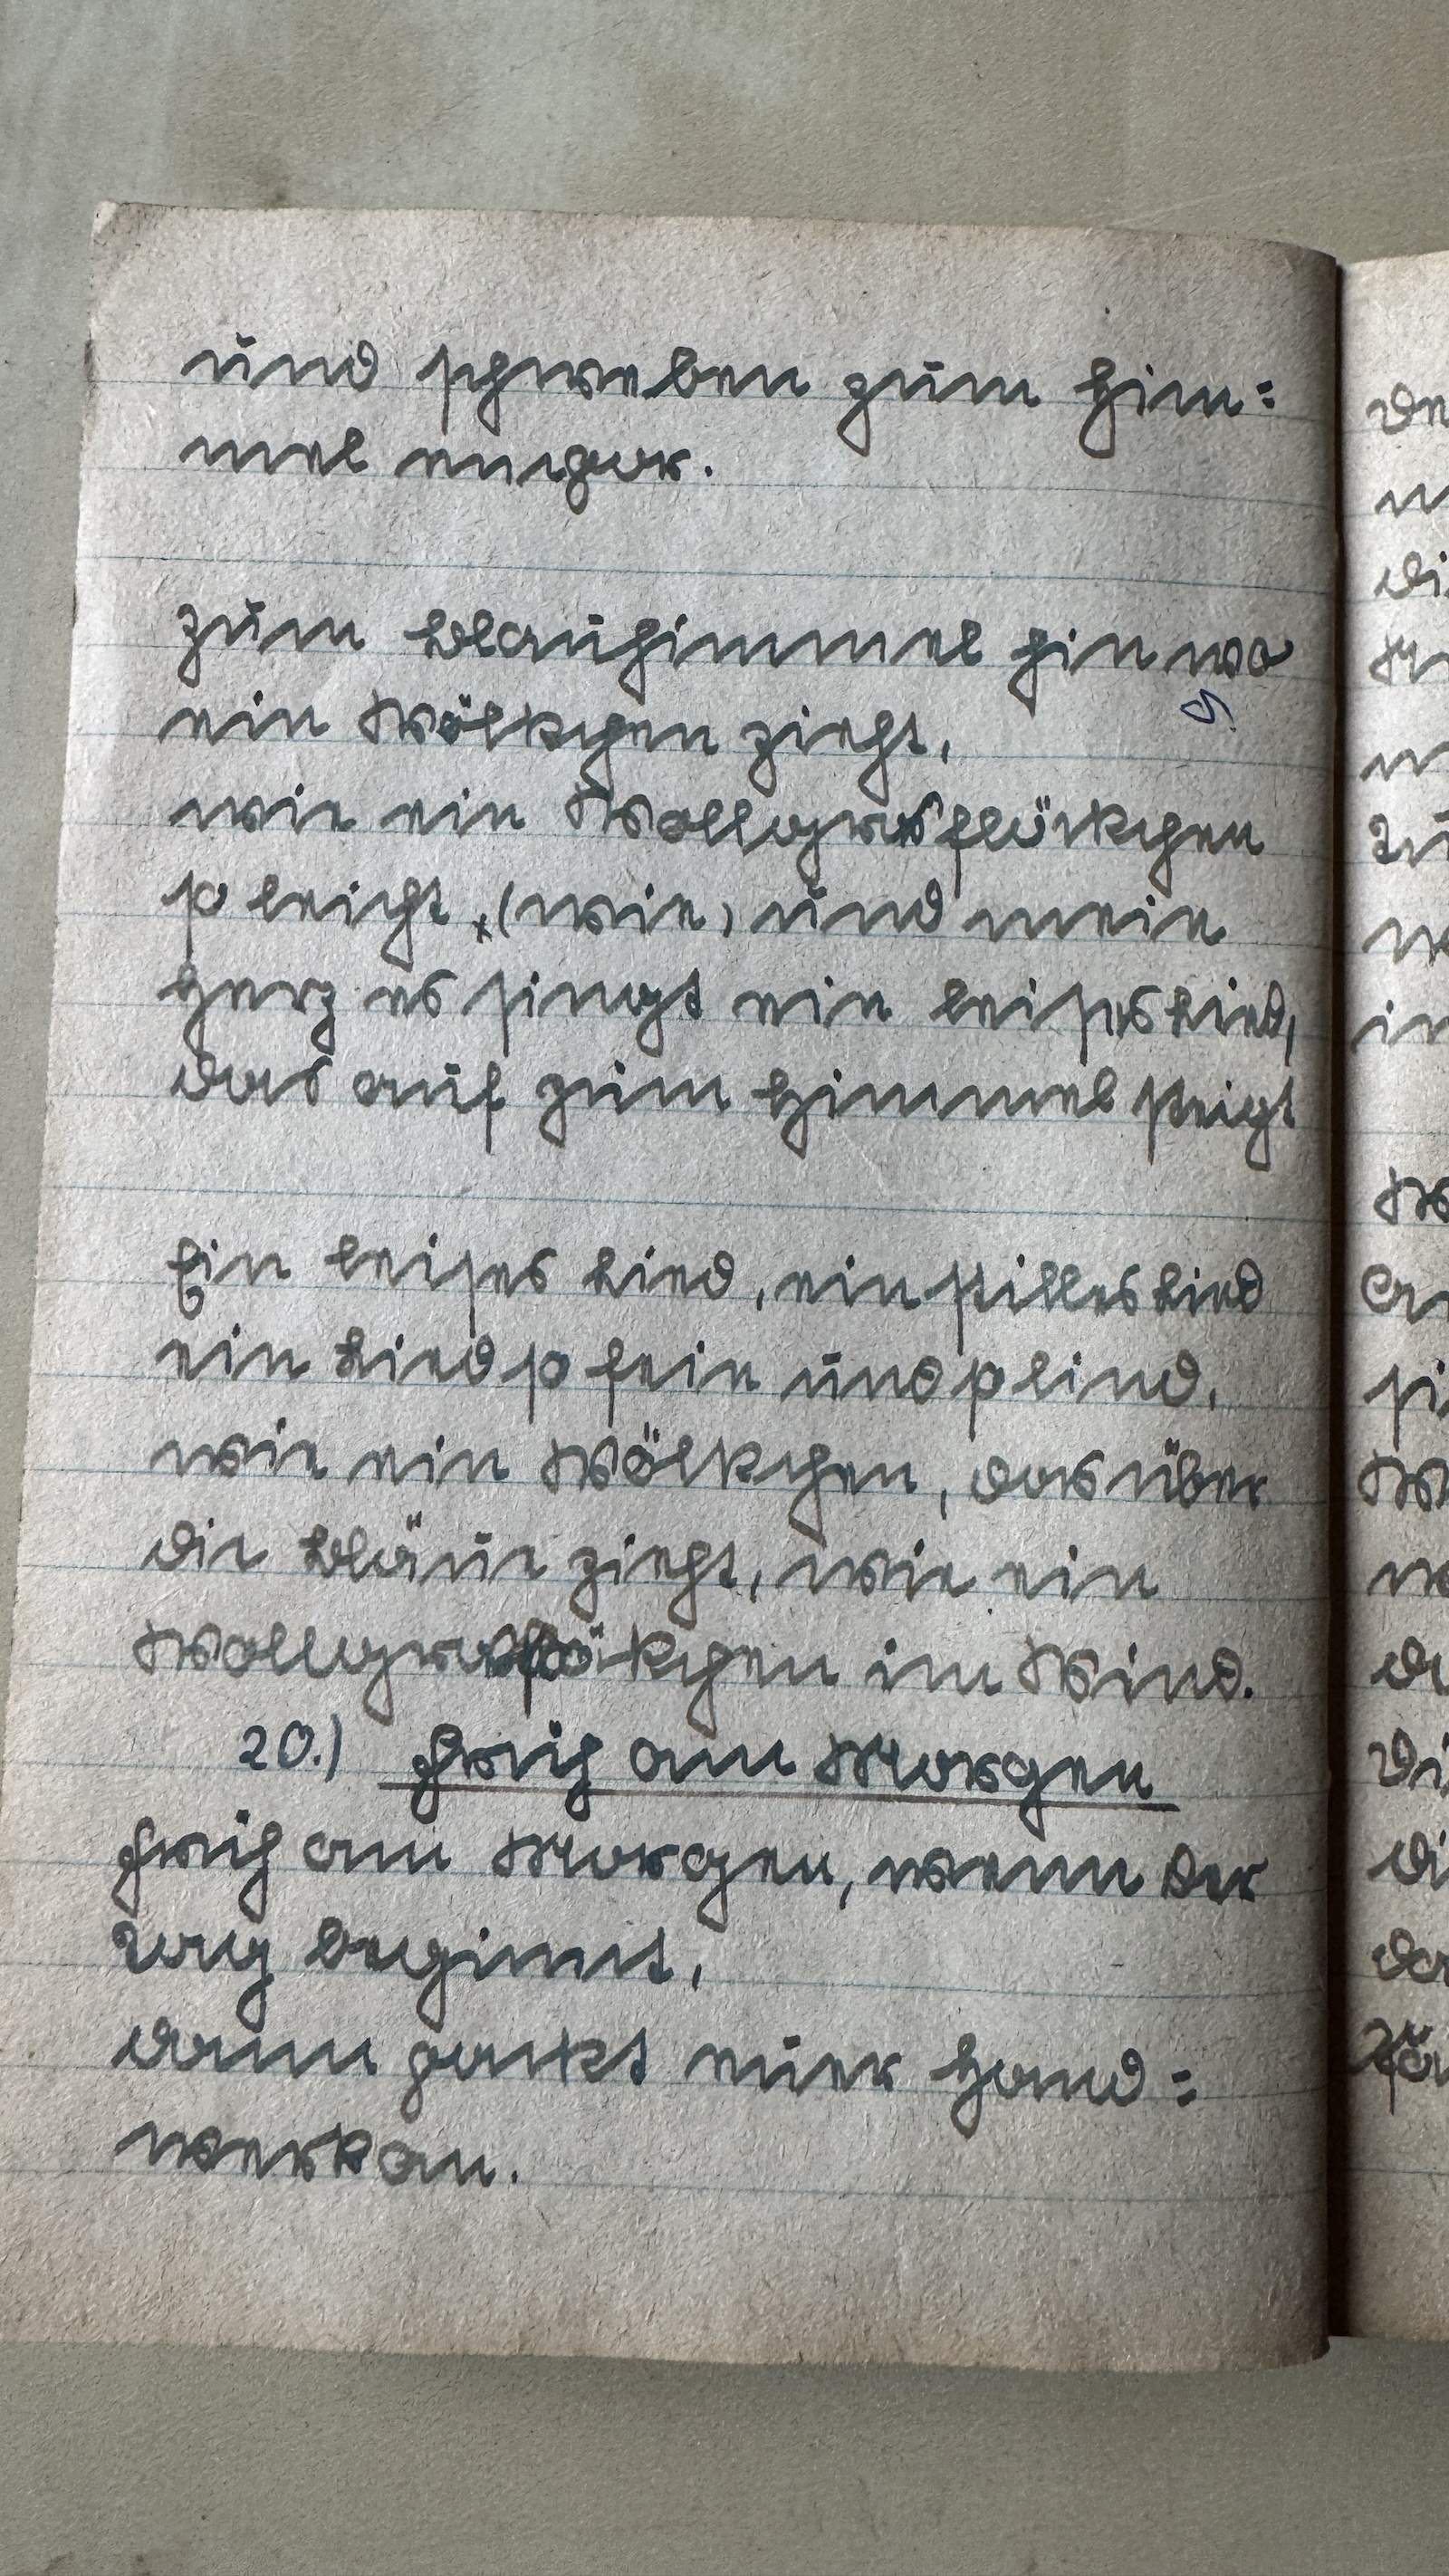 und schweben zum Him=
mel empor.
zum Blauhimmel hin wo
ein Wölkchen zieht,
wie ein Wollgrasflöckchen
so leicht, (wie) und mein
Herz es singt ein leises Lied,
das auf zum Himmel steigt
Ein leises Lied, ein stilles Lied
ein Lied so fein und so lind,
wie ein Wölkchen, das über
die Bläue zieht, wie ein
Wollgrasflöckchen im Wind.
20.) Früh am Morgen
Früh am Morgen, wenn der
Tag beginnt,
dann packt euer Hand=
werk an.